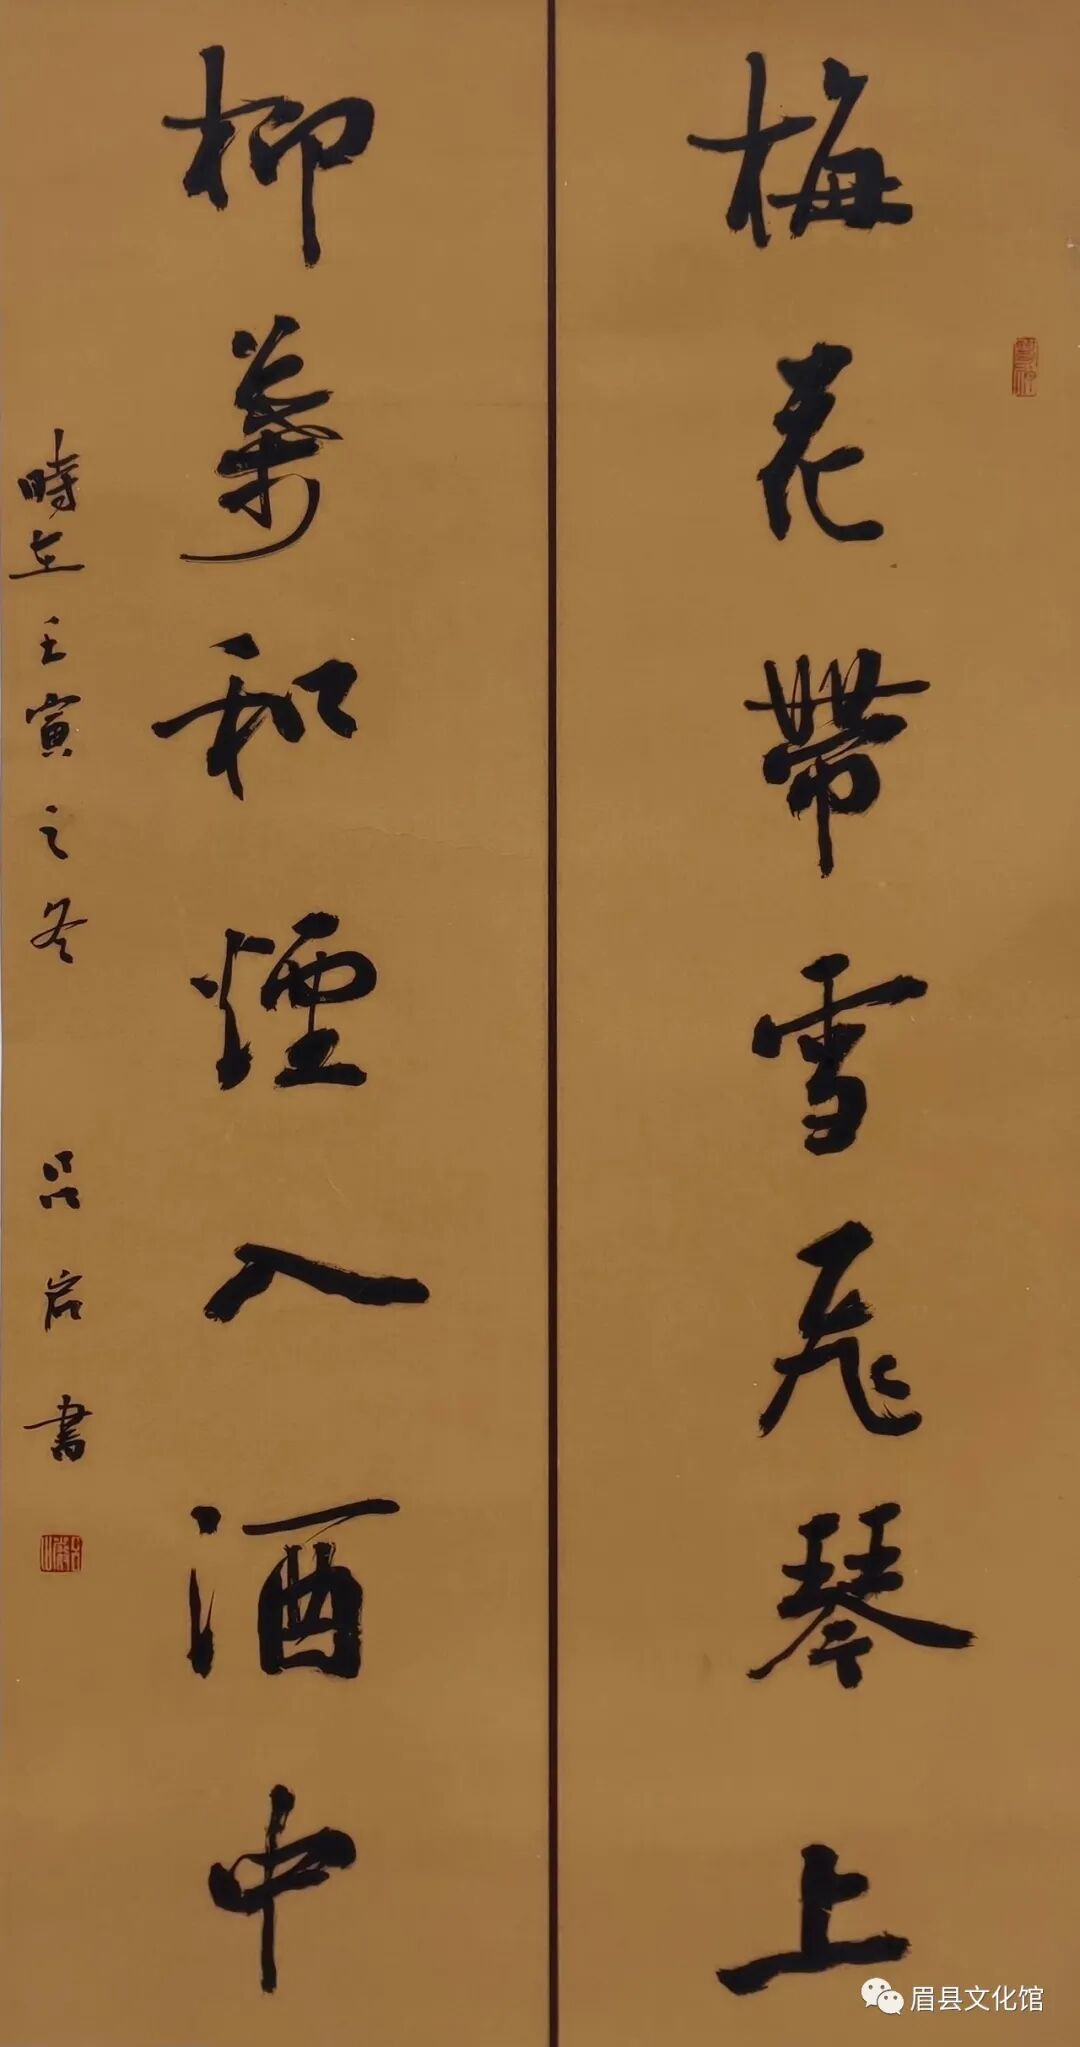 梅花帶雪飛琴上
柳葉和煙入酒中
時在壬寅之冬 吕宏書
眉县文化馆